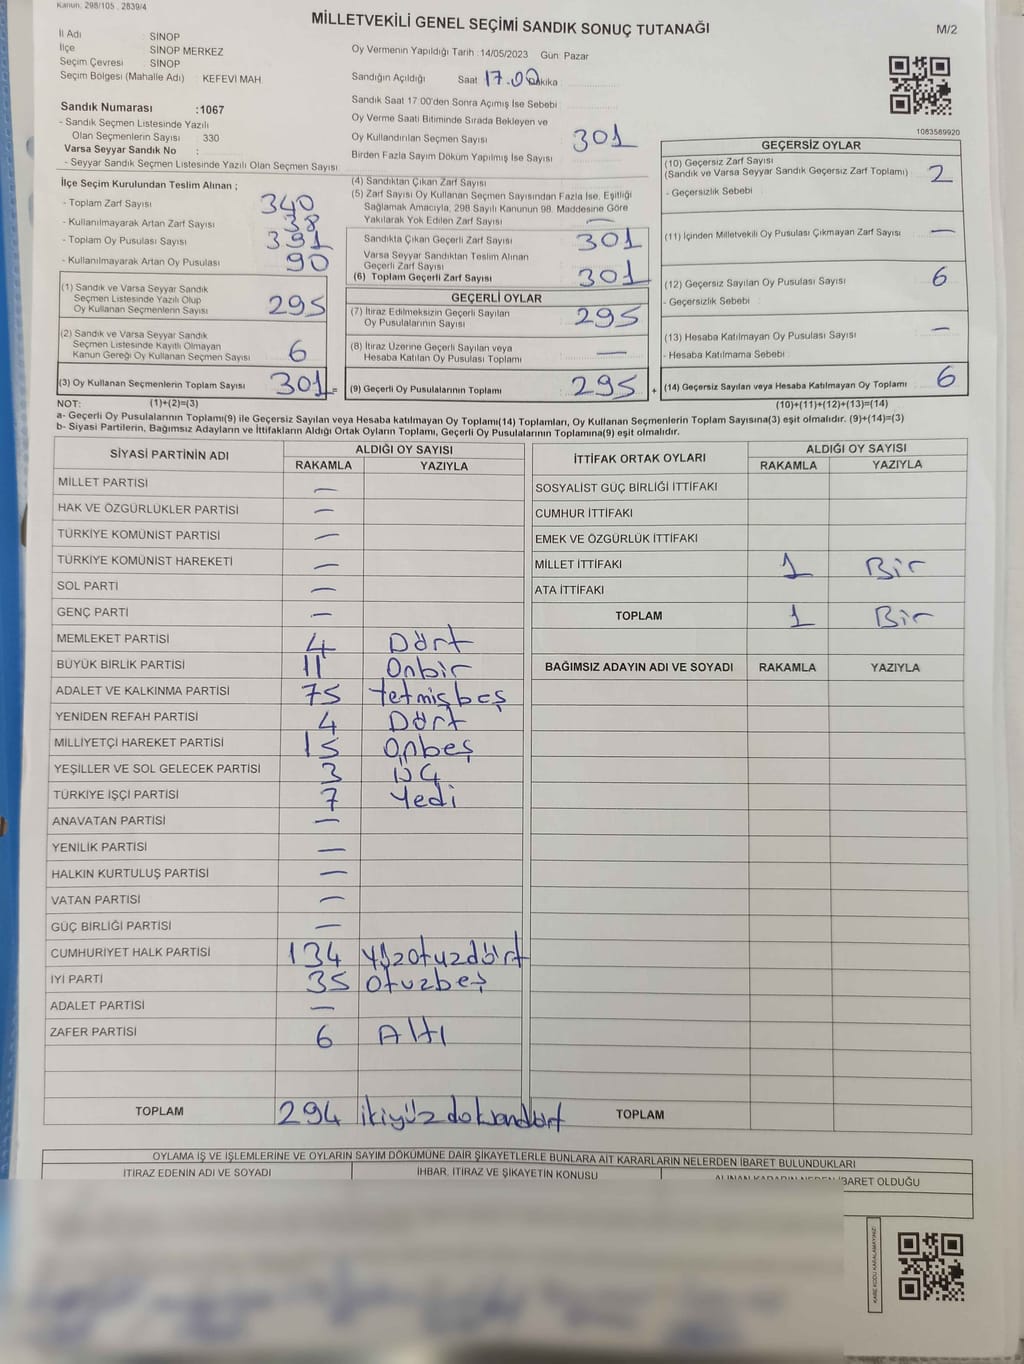 Kanun. 298/105 , 2839/4
MİLLETVEKİLİ GENEL SEÇİMİ SANDIK SONUÇ TUTANAĞI
M/2
İl Adı : SİNOP
İlçe : SİNOP MERKEZ
Seçim Çevresi : SİNOP
Seçim Bölgesi (Mahalle Adı) : KEFEVİ MAH.
Sandık Numarası :1067
- Sandık Seçmen Listesinde Yazılı
Olan Seçmenlerin Sayısı : 330
Varsa Seyyar Sandık No :
- Seyyar Sandık Seçmen Listesinde Yazılı Olan Seçmen Sayısı
Oy Vermenin Yapıldığı Tarih :14/05/2023 Gün: Pazar
Sandığın Açıldığı Saat 17.00 Dakika
Sandık Saat 17:00'den Sonra Açımış İse Sebebi
Oy Verme Saati Bitiminde Sırada Bekleyen ve
Oy Kullandırılan Seçmen Sayısı 301
Birden Fazla Sayım Döküm Yapılmış İse Sayısı
1083589920
İlçe Seçim Kurulundan Teslim Alınan ;
- Toplam Zarf Sayısı 340
- Kullanılmayarak Artan Zarf Sayısı 38
- Toplam Oy Pusulası Sayısı 391
- Kullanılmayarak Artan Oy Pusulası 90
(1) Sandık ve Varsa Seyyar Sandık
Seçmen Listesinde Yazılı Olup
Oy Kullanan Seçmenlerin Sayısı 295
(2) Sandık ve Varsa Seyyar Sandık
Seçmen Listesinde Kayıtlı Olmayan
Kanun Gereği Oy Kullanan Seçmen Sayısı 6
(3) Oy Kullanan Seçmenlerin Toplam Sayısı 301 =
(4) Sandıktan Çıkan Zarf Sayısı
(5) Zarf Sayısı Oy Kullanan Seçmen Sayısından Fazla İse, Eşitliği
Sağlamak Amacıyla, 298 Sayılı Kanunun 98. Maddesine Göre
Yakılarak Yok Edilen Zarf Sayısı —
Sandıkta Çıkan Geçerli Zarf Sayısı 301
Varsa Seyyar Sandıktan Teslim Alınan
Geçerli Zarf Sayısı
(6) Toplam Geçerli Zarf Sayısı 301
GEÇERLİ OYLAR
(7) İtiraz Edilmeksizin Geçerli Sayılan
Oy Pusulalarının Sayısı 295
(8) İtiraz Üzerine Geçerli Sayılan veya
Hesaba Katılan Oy Pusulası Toplamı —
(9) Geçerli Oy Pusulalarının Toplamı 295 +
GEÇERSİZ OYLAR
(10) Geçersiz Zarf Sayısı
(Sandık ve Varsa Seyyar Sandık Geçersiz Zarf Toplamı) 2
- Geçersizlik Sebebi :
(11) İçinden Milletvekili Oy Pusulası Çıkmayan Zarf Sayısı —
(12) Geçersiz Sayılan Oy Pusulası Sayısı 6
- Geçersizlik Sebebi :
(13) Hesaba Katılmayan Oy Pusulası Sayısı —
- Hesaba Katılmama Sebebi :
(14) Geçersiz Sayılan veya Hesaba Katılmayan Oy Toplamı 6
NOT: (1)+(2)=(3) (10)+(11)+(12)+(13)=(14)
a- Geçerli Oy Pusulalarının Toplamı(9) ile Geçersiz Sayılan veya Hesaba katılmayan Oy Toplamı(14) Toplamları, Oy Kullanan Seçmenlerin Toplam Sayısına(3) eşit olmalıdır. (9)+(14)=(3)
b- Siyasi Partilerin, Bağımsız Adayların ve İttifakların Aldığı Ortak Oyların Toplamı, Geçerli Oy Pusulalarının Toplamına(9) eşit olmalıdır.
SİYASİ PARTİNİN ADI ALDIĞI OY SAYISI
RAKAMLA YAZIYLA
MİLLET PARTİSİ —
HAK VE ÖZGÜRLÜKLER PARTİSİ —
TÜRKİYE KOMÜNİST PARTİSİ —
TÜRKİYE KOMÜNİST HAREKETİ —
SOL PARTİ —
GENÇ PARTİ —
MEMLEKET PARTİSİ 4 Dört
BÜYÜK BİRLİK PARTİSİ 11 Onbir
ADALET VE KALKINMA PARTİSİ 75 Yetmişbeş
YENİDEN REFAH PARTİSİ 4 Dört
MİLLİYETÇİ HAREKET PARTİSİ 15 Onbeş
YEŞİLLER VE SOL GELECEK PARTİSİ 3 ÜÇ
TÜRKİYE İŞÇİ PARTİSİ 7 Yedi
ANAVATAN PARTİSİ —
YENİLİK PARTİSİ —
HALKIN KURTULUŞ PARTİSİ —
VATAN PARTİSİ —
GÜÇ BİRLİĞİ PARTİSİ —
CUMHURİYET HALK PARTİSİ 134 Yüzotuzdört
İYİ PARTİ 35 Otuzbeş
ADALET PARTİSİ —
ZAFER PARTİSİ 6 Altı
TOPLAM 294 ikiyüzdoksandört
İTTİFAK ORTAK OYLARI ALDIĞI OY SAYISI
RAKAMLA YAZIYLA
SOSYALİST GÜÇ BİRLİĞİ İTTİFAKI
CUMHUR İTTİFAKI
EMEK VE ÖZGÜRLÜK İTTİFAKI
MİLLET İTTİFAKI 1 Bir
ATA İTTİFAKI
TOPLAM 1 Bir
BAĞIMSIZ ADAYIN ADI VE SOYADI RAKAMLA YAZIYLA
TOPLAM
OYLAMA İŞ VE İŞLEMLERİNE VE OYLARIN SAYIM DÖKÜMÜNE DAİR ŞİKAYETLERLE BUNLARA AİT KARARLARIN NELERDEN İBARET BULUNDUKLARI
İTİRAZ EDENİN ADI VE SOYADI İHBAR, İTİRAZ VE ŞİKAYETİN KONUSU ALINAN KARARIN NEDEN İBARET OLDUĞU
KARE KODU KARALAMAYINIZ!